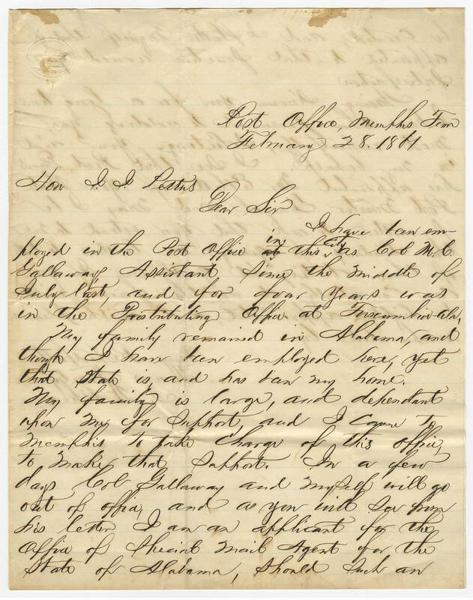 Post Office, Memphis Tenn
February 28. 1861
Hon J. J. Pettus
Dear Sir
I have been em-
ployed in the Post Office in this City as Col M. C.
Gallaways Assistant Since the middle of
July last, and for four years was
in the Distributing Office at Tuscumbia Ala,
My family remained in Alabama, and
though I have been employed here, yet
that State is, and has been my home.
My family is large, and dependant
upon my for Support, and I came to
Memphis to take charge of this office,
to make that Support. In a few
days Col Gallaway and myself will go
out of office and as you will See from
his letter I am an applicant for the
Office of Special Mail Agent for the
State of Alabama, Should Such an